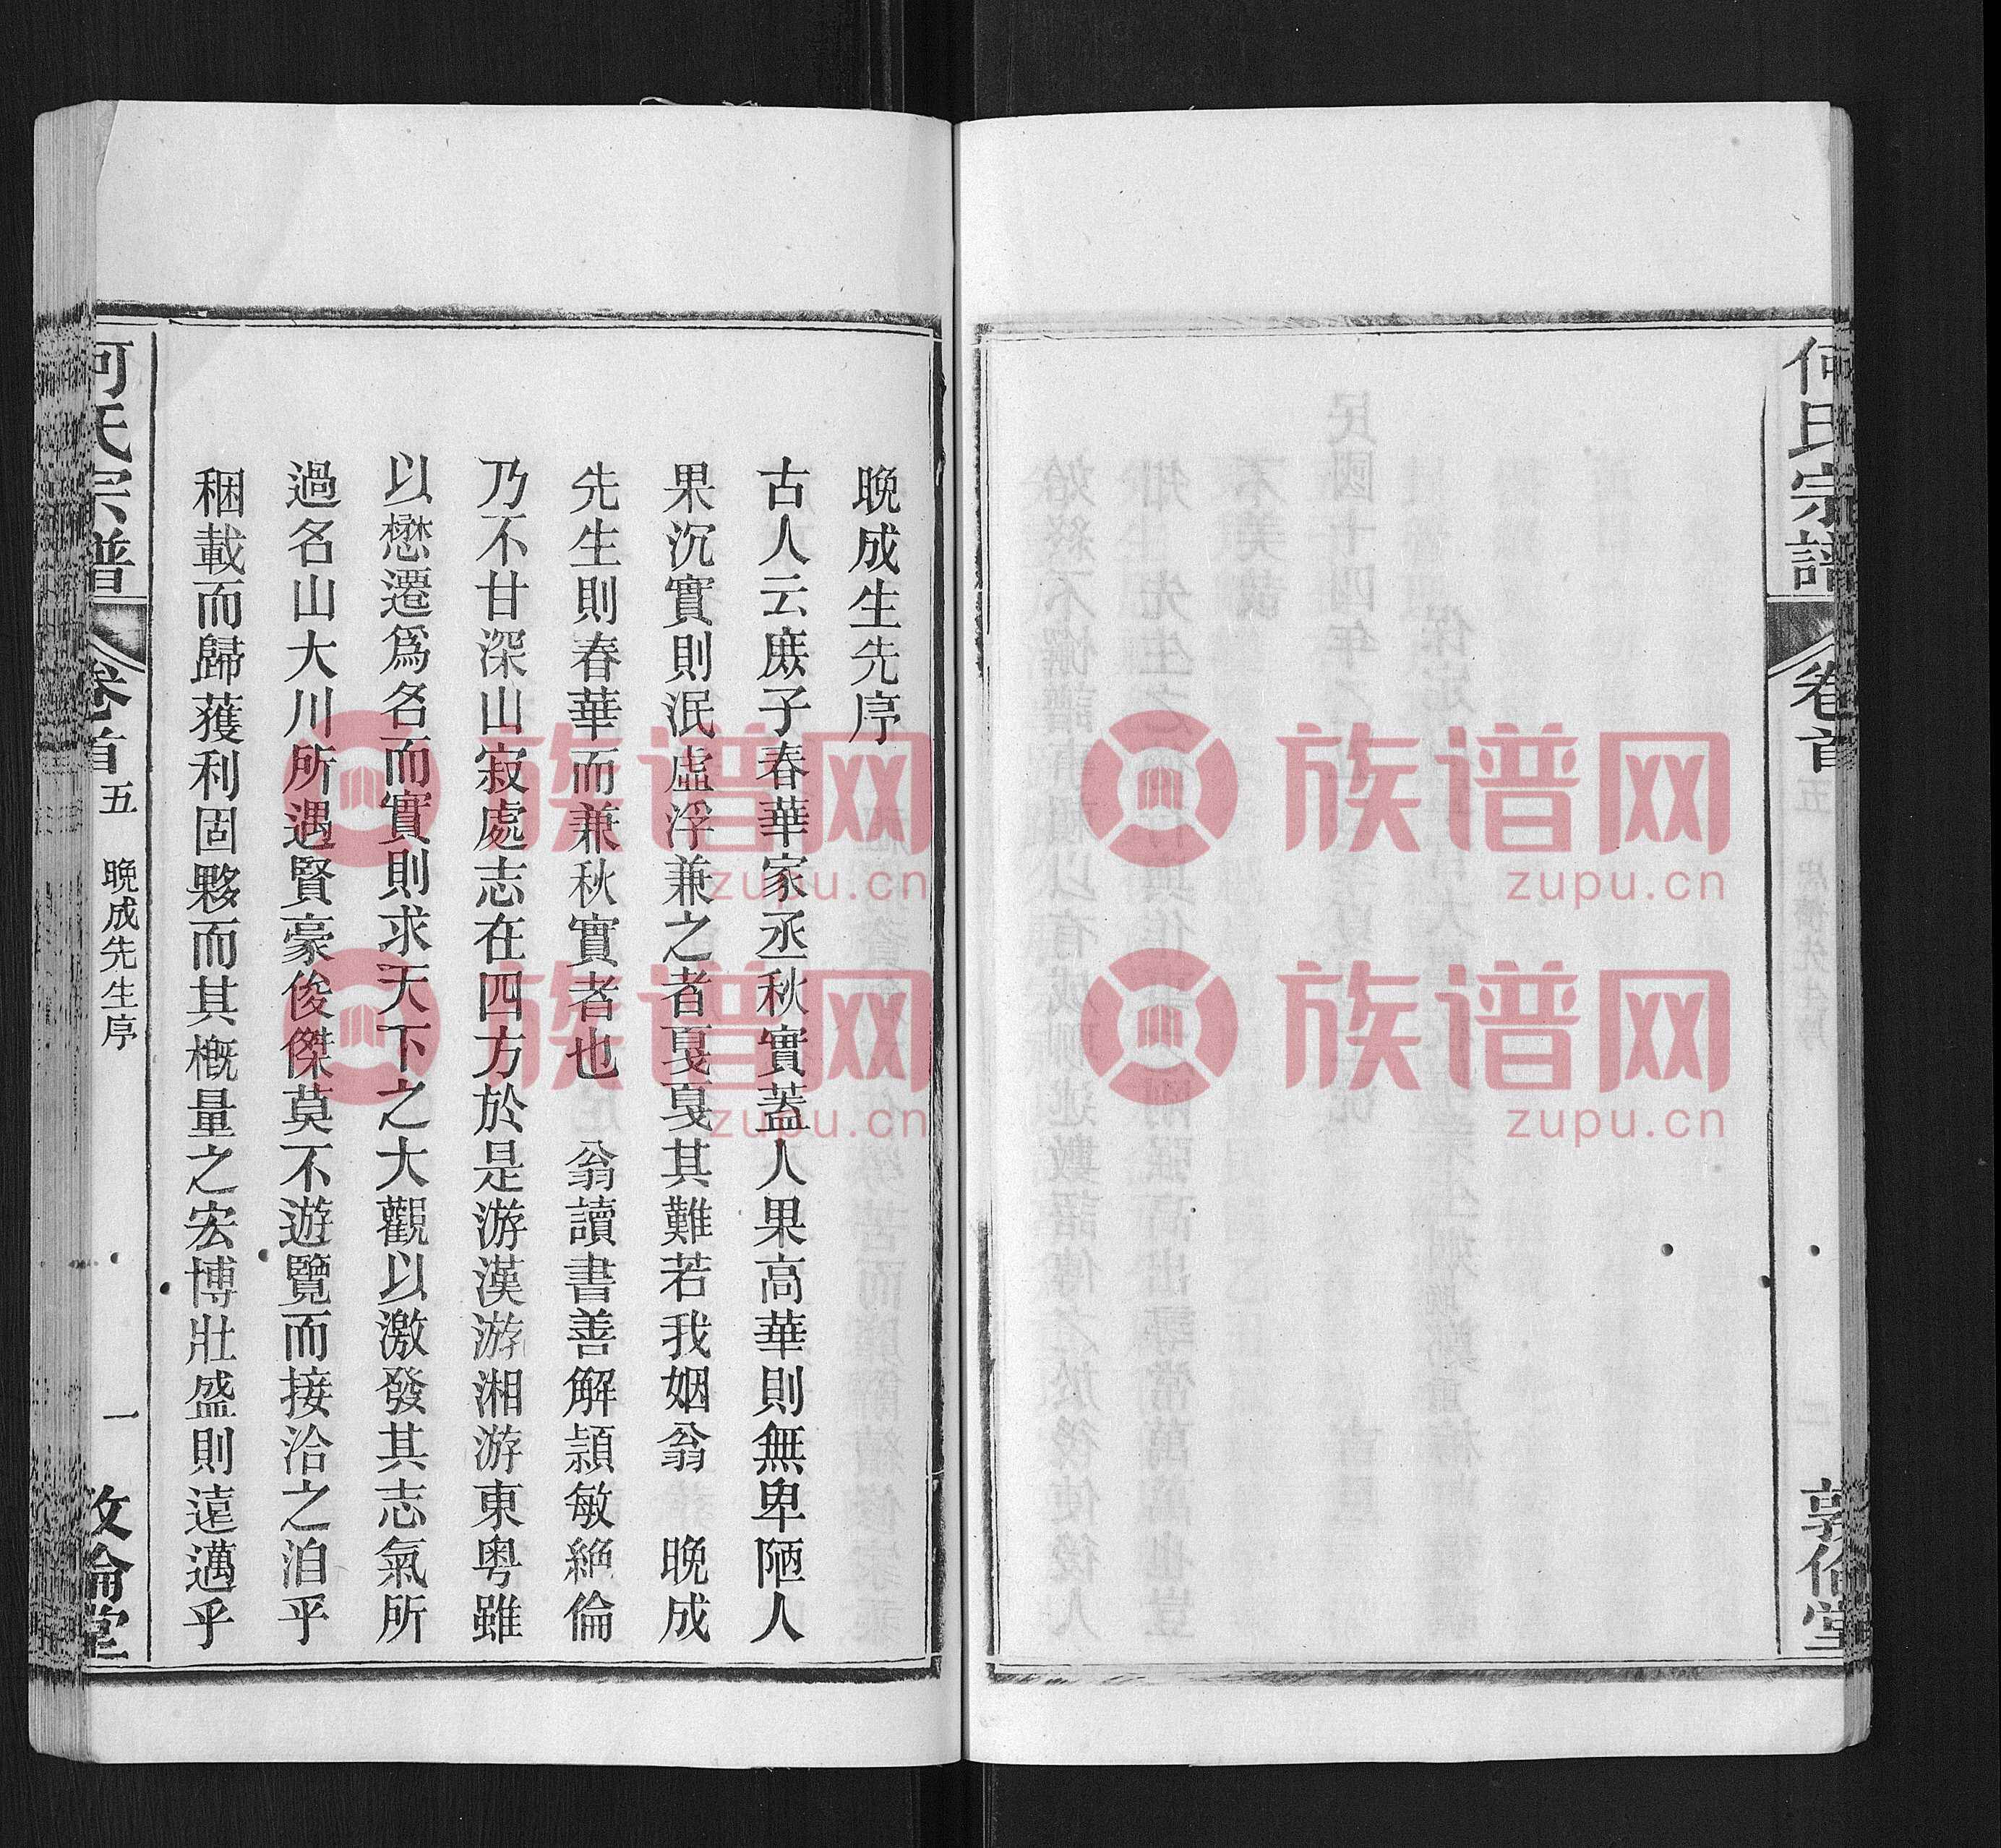 何氏宗譜
卷首
敦倫堂
晚成生先序
古人云庶子春華家丞秋實蓋人果高華則無卑陋人
果沉實則泯虛浮兼之者戛戛其難若我姻翁 晚成
先生則春華而兼秋實者也 翁讀書善解穎敏絶倫
乃不甘深山寂處志在四方於是游漢游湘游東粤雖
以懋遷爲名而實則求天下之大觀以激發其志氣所
過名山大川所遇賢豪俊傑莫不遊覽而接洽之洎乎
稛載而歸獲利固夥而其概量之宏博壯盛則遠邁乎
何氏宗譜
卷首
五
晚成先生序
一
敦倫堂
族谱网
zupu.cn
族谱网
zupu.cn
族谱网
zupu.cn
族谱网
zupu.cn